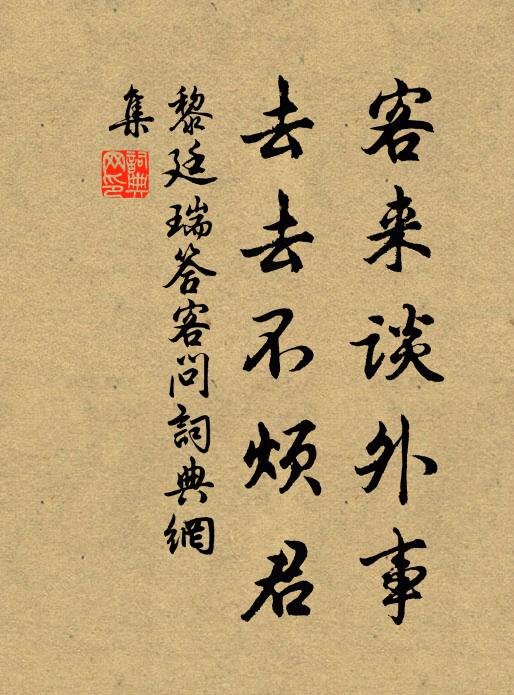 客来谈外事
去去不烦君
黎廷瑞答客問詞典網
集
詞典
网印